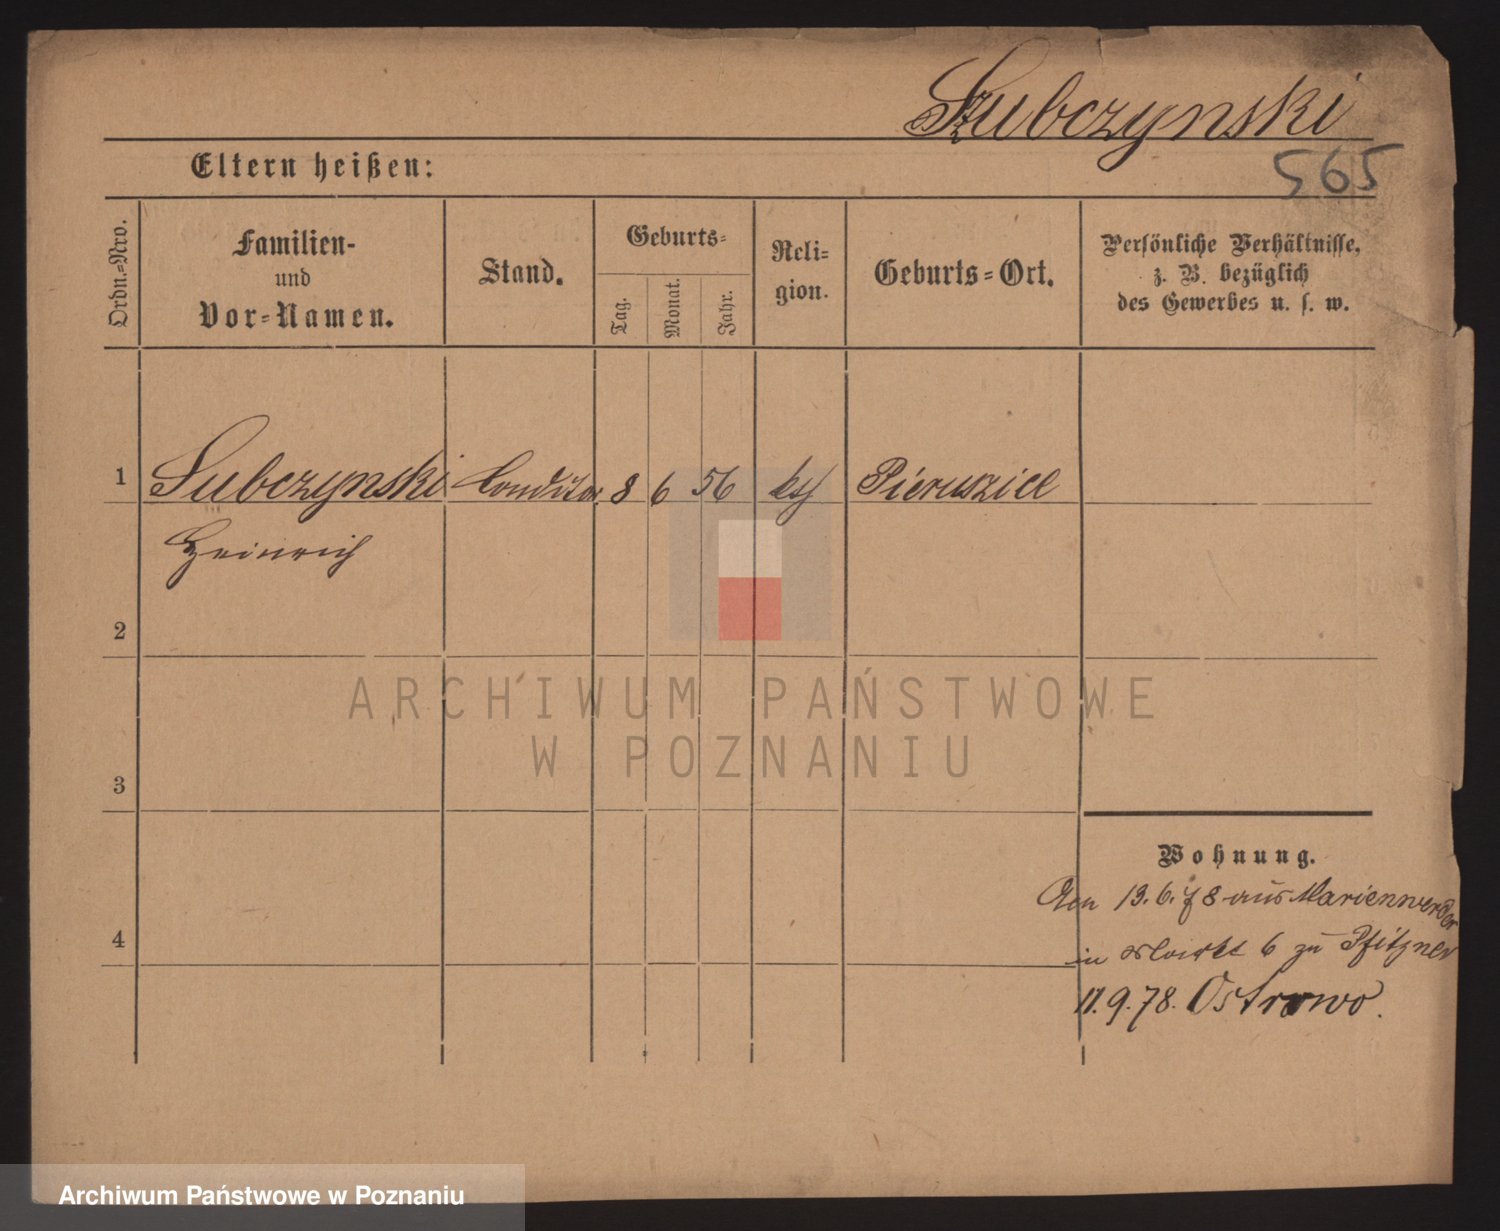 Szubczynski
565
Eltern heißen:
Ordn.=Nro.
Familien-
und
Vor=Namen.
Stand.
Geburts=
Tag.
Monat.
Jahr.
Reli=
gion.
Geburts=Ort.
Persönliche Verhältnisse,
z. B. bezüglich
des Gewerbes u. s. w.
1 Subczynski Conditor 8 6 56
Heinrich
2
3
4
Wohnung.
13. 6. 78 aus Marienwerder
in Markt 6 zu Pfitzner
11. 9. 78. Ostrowo.
ARCHIWUM PAŃSTWOWE
W POZNANIU
Archiwum Państwowe w Poznaniu